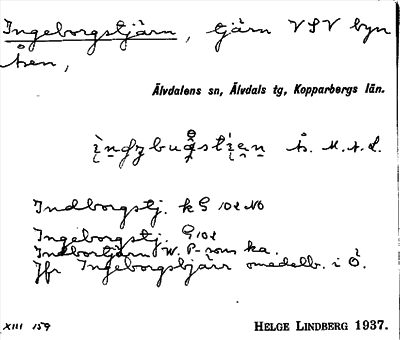 Ingeborgstjärn, tjärn VSV byn
Åsen,
Älvdalens sn, Älvdals tg, Kopparbergs län.
Å. M. A. L.
Indborgstj. k G 102 NO
Ingeborgstj. G 102
Indbortjärn W. P-rons ka.
Jfr Ingeborgsbjärr omedelb. i Ö.
XIII 159
HELGE LINDBERG 1937.